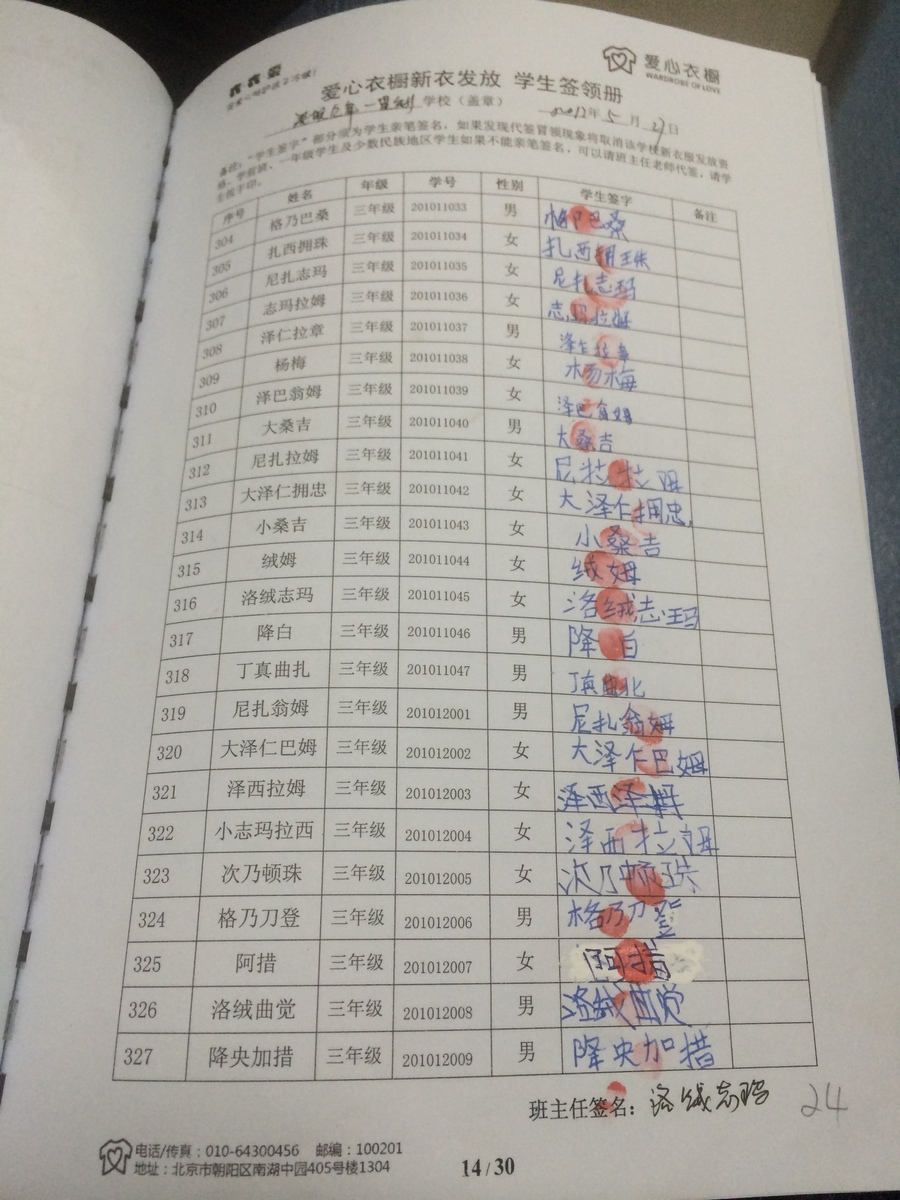 爱心衣橱
WARDROBE OF LOVE
爱心衣橱新衣发放 学生签领册
学校（盖章） 2012年5月27日
备注：“学生签字”部分须为学生亲笔签名，如果发现代签冒领现象将取消该学校新衣橱发放资
格。学前班、一年级学生及少数民族地区学生如果不能亲笔签名，可以请班主任老师代签，请学
生按手印。
序号 姓名 年级 学号 性别 学生签字 备注
304 格乃巴桑 三年级 201011033 男 巴桑
305 扎西拥珠 三年级 201011034 女 扎西拥珠
306 尼扎志玛 三年级 201011035 女 尼扎志玛
307 志玛拉姆 三年级 201011036 女 志玛拉姆
308 泽仁拉章 三年级 201011037 男 泽仁拉章
309 杨梅 三年级 201011038 女 杨梅
310 泽巴翁姆 三年级 201011039 女 泽巴翁姆
311 大桑吉 三年级 201011040 男 大桑吉
312 尼扎拉姆 三年级 201011041 女 尼拉拉姆
313 大泽仁拥忠 三年级 201011042 女 大泽仁拥忠
314 小桑吉 三年级 201011043 女 小桑吉
315 绒姆 三年级 201011044 女 绒姆
316 洛绒志玛 三年级 201011045 女 洛绒志玛
317 降白 三年级 201011046 男 降白
318 丁真曲扎 三年级 201011047 男 丁真曲北
319 尼扎翁姆 三年级 201012001 男 尼扎翁姆
320 大泽仁巴姆 三年级 201012002 女 大泽仁巴姆
321 泽西拉姆 三年级 201012003 女 泽西泽姆
322 小志玛拉西 三年级 201012004 女 泽西拉姆
323 次乃顿珠 三年级 201012005 女 次乃顿珠
324 格乃刀登 三年级 201012006 男 格乃刀登
325 阿措 三年级 201012007 女 阿措
326 洛绒曲觉 三年级 201012008 男 洛绒曲觉
327 降央加措 三年级 201012009 男 降央加措
班主任签名：洛绒志玛 24
电话/传真：010-64300456 邮编：100201
地址：北京市朝阳区南湖中园405号楼1304
14/30